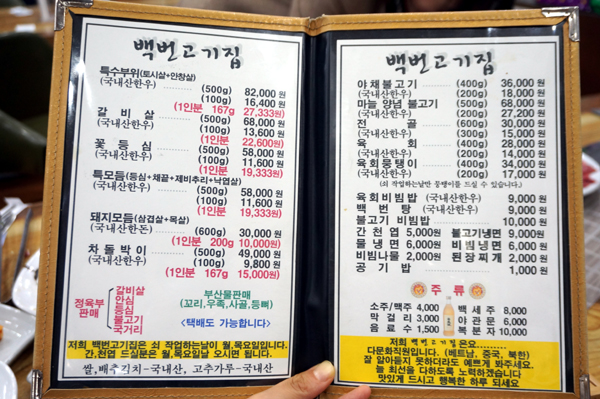 백번고기집
특수부위(토시살+안창살)
(국내산한우)
(500g) 82,000 원
(100g) 16,400 원
(1인분 167g 27,333원)
갈비살 (500g) 68,000 원
(국내산한우) (100g) 13,600 원
(1인분 22,600원)
꽃등심 (500g) 58,000 원
(국내산한우) (100g) 11,600 원
(1인분 19,333원)
특모듬(등심+채끝+제비추리+낙엽살)
(국내산한우) (500g) 58,000 원
(100g) 11,600 원
(1인분 19,333원)
돼지모듬(삼겹살+목살)
(국내산한돈) (600g) 30,000 원
(1인분 200g 10,000원)
차돌박이 (500g) 49,000 원
(국내산한우) (100g) 9,800 원
(1인분 167g 15,000원)
정육부 판매
갈비살
안심
등심
불고기
국거리
부산물판매
(꼬리,우족,사골,등뼈)
<택배도 가능합니다>
저희 백번고기집은 소 작업하는날이 월,목요일입니다.
간,천엽 드실분은 월,목요일날 오시면 됩니다.
쌀,배추김치-국내산, 고추가루-국내산
백번고기집
야채불고기 (400g) 36,000 원
(국내산한우) (200g) 18,000 원
마늘 양념 불고기 (500g) 68,000 원
(국내산한우) (200g) 27,200 원
전골 (600g) 30,000 원
(국내산한우) (300g) 15,000 원
육회 (400g) 28,000 원
(국내산한우) (200g) 14,000 원
육회뭉탱이 (400g) 34,000 원
(국내산한우) (200g) 17,000 원
(소 작업하는날만 뭉탱이를 드실 수 있습니다.)
육회비빔밥 (국내산한우) 9,000 원
백번탕 (국내산한우) 9,000 원
불고기 비빔밥 10,000 원
간천엽 5,000원 불고기냉면 9,000 원
물냉면 6,000원 비빔냉면 6,000 원
비빔나물 2,000원 된장찌개 2,000 원
공기밥 1,000 원
주류
소주/맥주 4,000 백세주 8,000
막걸리 3,000 야관문 6,000
음료수 1,500 복분자 10,000
저희 백번고기집은요
다문화직원입니다. (베트남, 중국, 북한)
잘 알아듣지 못하더라도 예쁘게 봐주세요.
늘 최선을 다하도록 노력하겠습니다
맛있게 드시고 행복한 하루 되세요